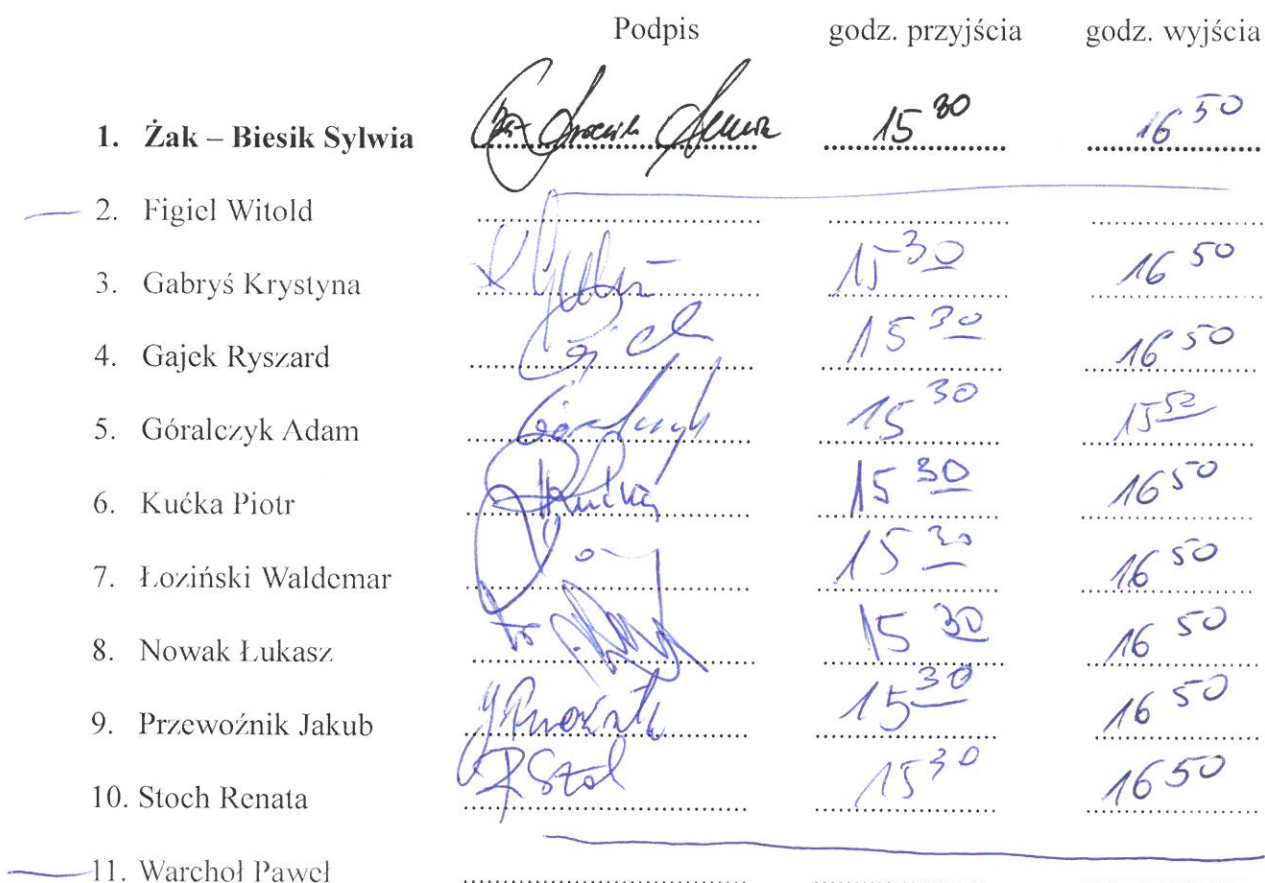 Podpis godz. przyjścia godz. wyjścia
1. Żak – Biesik Sylwia 15 30 16 50
2. Figiel Witold
3. Gabryś Krystyna 15 30 16 50
4. Gajek Ryszard 15 30 16 50
5. Góralczyk Adam Góralczyk 15 30 15 52
6. Kućka Piotr Kućka 15 30 16 50
7. Łoziński Waldemar 15 30 16 50
8. Nowak Łukasz 15 30 16 50
9. Przewoźnik Jakub 15 30 16 50
10. Stoch Renata 15 30 16 50
11. Warchoł Paweł